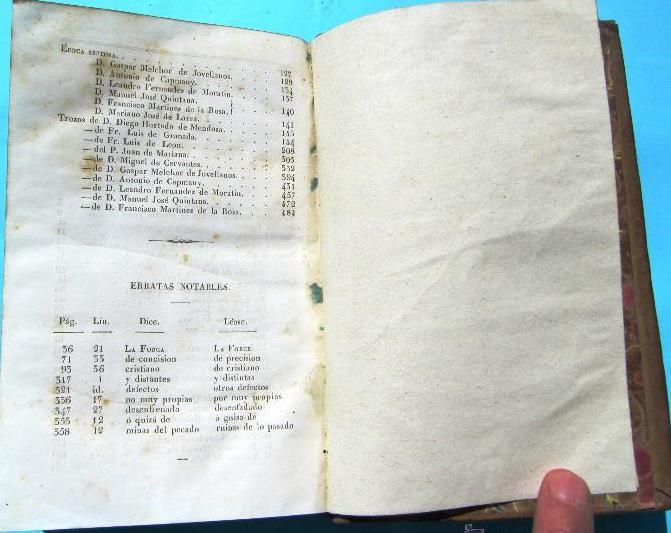 ÉPOCA SEPTIMA. .
D. Gaspar Melchor de Jovellanos. . . . 127
D. Antonio de Capmany. . . . . . 129
D. Leandro Fernandez de Moratin. . . . 134
D. Manuel José Quintana. . . . . . 137
D. Francisco Martinez de la Rosa,
D. Mariano José de Larra. . . . . 140
Trozos de D. Diego Hurtado de Mendoza. . . . 141
—de Fr. Luis de Granada. . . . . . 145
—de Fr. Luis de Leon. . . . . . 154
—del P. Juan de Mariana. . . . . . 208
—de D. Miguel de Cervantes. . . . . 305
—de D. Gaspar Melchor de Jovellanos. . . . 352
—de D. Antonio de Capmany. . . . . 394
—de D. Leandro Fernandez de Moratin. . . . 431
—de D. Manuel José Quintana. . . . . 457
—de D. Francisco Martinez de la Rosa. . . . 472
484
ERRATAS NOTABLES.
Pág. Lín. Dice. Léase.
36 21 LA FORGA LA FORGE
71 33 de concision de precision
93 36 cristiano de cristiano
317 1 y distantes y distintas
321 id. defectos otros defectos
336 17 no muy propias por muy propias
347 27 desenfrenado desenfadado
355 12 ó quizá de á guisa de
358 12 minas del pecado ruinas de lo pasado